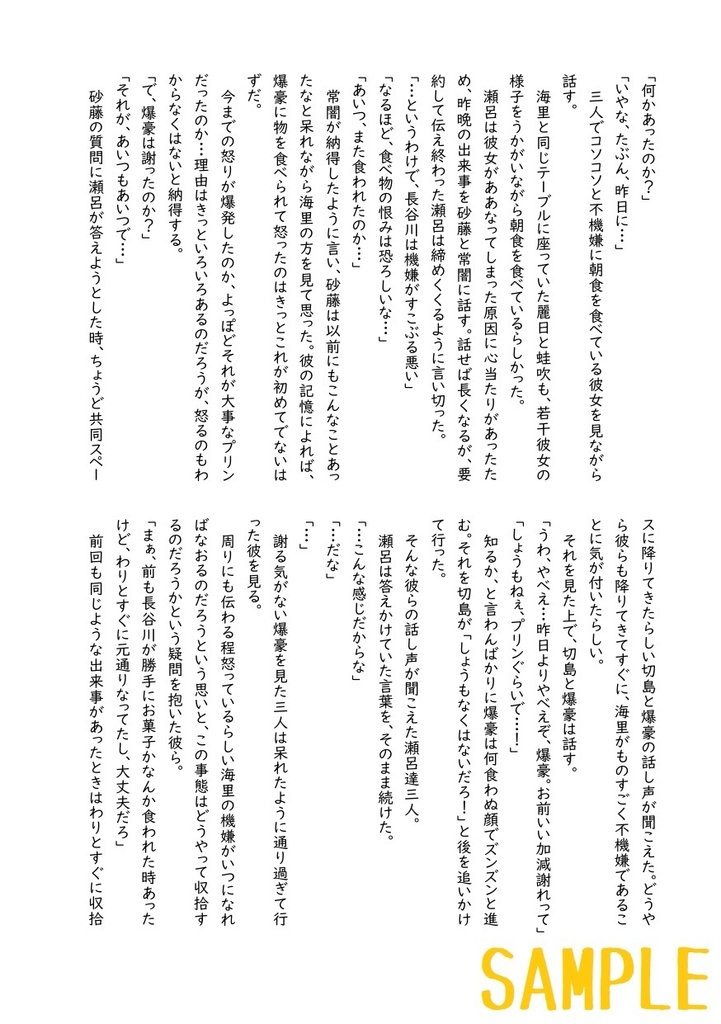 「何かあったのか？」
「いやな、たぶん、昨日に…」
　三人でコソコソと不機嫌に朝食を食べている彼女を見ながら
話す。
　海里と同じテーブルに座っていた麗日と蛙吹も、若干彼女の
様子をうかがいながら朝食を食べているらしかった。
　瀬呂は彼女がああなってしまった原因に心当たりがあったた
め、昨晩の出来事を砂藤と常闇に話す。話せば長くなるが、要
約して伝え終わった瀬呂は締めくくるように言い切った。
「…というわけで、長谷川は機嫌がすこぶる悪い」
「なるほど、食べ物の恨みは恐ろしいな…」
「あいつ、また食われたのか…」
　常闇が納得したように言い、砂藤は以前にもこんなことあっ
たなと呆れながら海里の方を見て思った。彼の記憶によれば、
爆豪に物を食べられて怒ったのはきっとこれが初めてでないは
ずだ。
　今までの怒りが爆発したのか、よっぽどそれが大事なプリン
だったのか…理由はきっといろいろあるのだろうが、怒るのもわ
からなくはないと納得する。
「で、爆豪は謝ったのか？」
「それが、あいつもあいつで…」
　砂藤の質問に瀬呂が答えようとした時、ちょうど共同スペー
スに降りてきたらしい切島と爆豪の話し声が聞こえた。どうや
ら彼らも降りてきてすぐに、海里がものすごく不機嫌であるこ
とに気が付いたらしい。
　それを見た上で、切島と爆豪は話す。
「うわ、やべえ…昨日よりやべえぞ、爆豪。お前いい加減謝れって」
「しょうもねぇ、プリンぐらいで…！」
　知るか、と言わんばかりに爆豪は何食わぬ顔でズンズンと進
む。それを切島が「しょうもなくはないだろ！」と後を追いかけ
て行った。
　そんな彼らの話し声が聞こえた瀬呂達三人。
　瀬呂は答えかけていた言葉を、そのまま続けた。
「…こんな感じだからな」
「…だな」
「…」
　謝る気がない爆豪を見た三人は呆れたように通り過ぎて行
った彼を見る。
　周りにも伝わる程怒っているらしい海里の機嫌がいつになれ
ばなおるのだろうという思いと、この事態はどうやって収拾す
るのだろうかという疑問を抱いた彼ら。
「まぁ、前も長谷川が勝手にお菓子かなんか食われた時あった
けど、わりとすぐに元通りなってたし、大丈夫だろ」
　前回も同じような出来事があったときはわりとすぐに収拾
SAMPLE